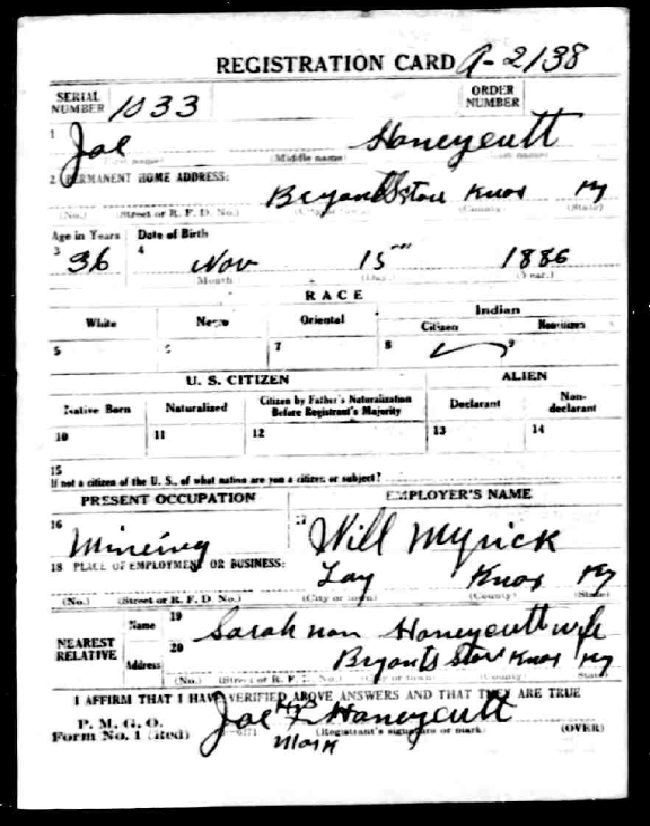 REGISTRATION CARD A-2138
SERIAL NUMBER 1033 ORDER NUMBER
1 Joe Honeycutt
(First name) (Middle name) (Last name)
2 PERMANENT HOME ADDRESS:
Bryants Store Knox Ky
(No.) (Street or R. F. D. No.) (County) (State)
Age in Years Date of Birth
3 36 4 Nov 15th 1886
Month (Day) (Year.)
RACE
White Negro Oriental Indian
Citizen Noncitizen
5 6 7 8 9
U. S. CITIZEN ALIEN
Native Born Naturalized Citizen by Father's Naturalization Before Registrant's Majority Declarant Non-declarant
10 11 12 13 14
15
If not a citizen of the U. S., of what nation are you a citizen or subject?
PRESENT OCCUPATION EMPLOYER'S NAME
16 Mineing 17 Will Myrick
18 PLACE OF EMPLOYMENT OR BUSINESS:
Lay Knox Ky
(No.) (Street or R. F. D. No.) (City or town) (County) (State)
NEAREST RELATIVE
Name 19 Sarah nan Honeycutt wife
Address 20 Bryants Store Knox Ky
(No.) (Street or R. F. D. No.) (City or town) (County) (State)
I AFFIRM THAT I HAVE VERIFIED ABOVE ANSWERS AND THAT THEY ARE TRUE
P. M. G. O.
Form No. 1 (Red) Joe his X Honeycutt
mark (Registrant's signature or mark) (OVER)